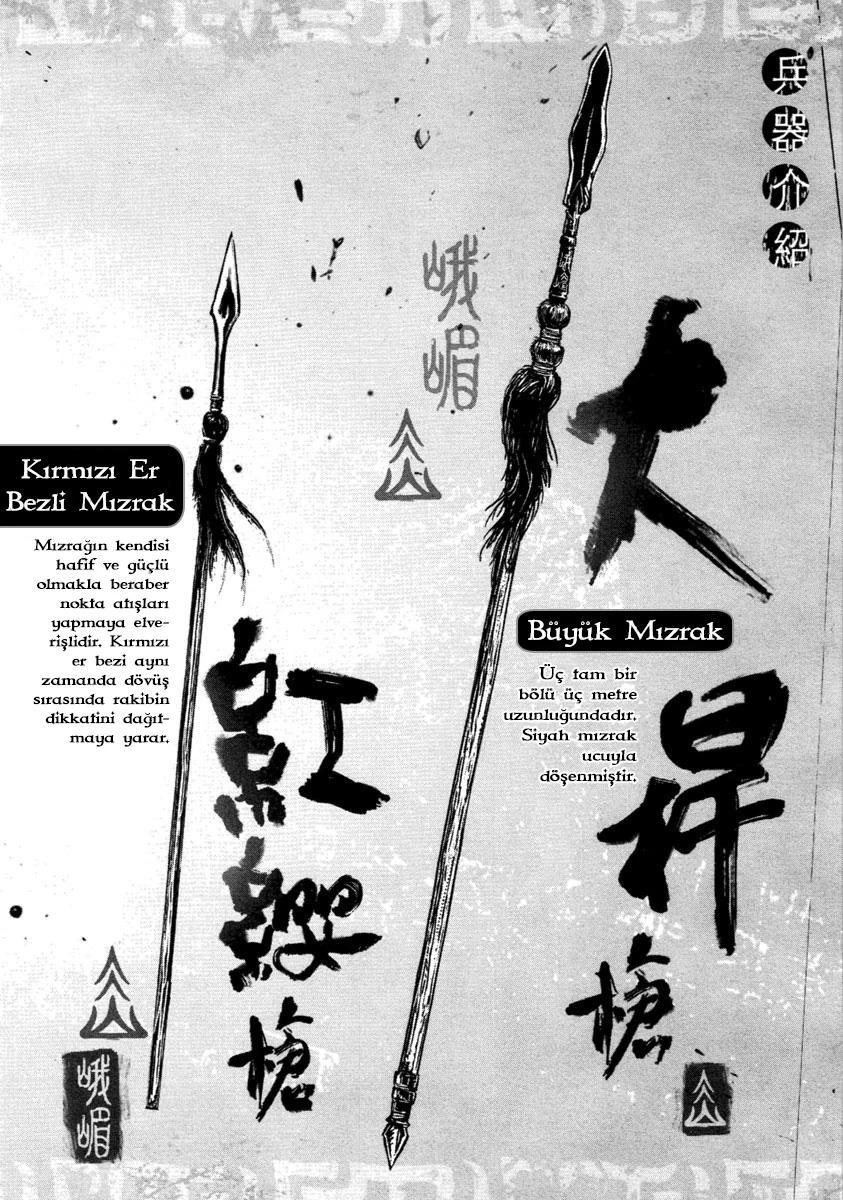 兵器介紹
峨嵋
大桿槍
Kırmızı Er
Bezli Mızrak
Mızrağın kendisi
hafif ve güçlü
olmakla beraber
nokta atışları
yapmaya elve-
rişlidir. Kırmızı
er bezi aynı
zamanda dövüş
sırasında rakibin
dikkatini dağıt-
maya yarar.
紅纓槍
Büyük Mızrak
Üç tam bir
bölü üç metre
uzunluğundadır.
Siyah mızrak
ucuyla
döşenmiştir.
峨嵋